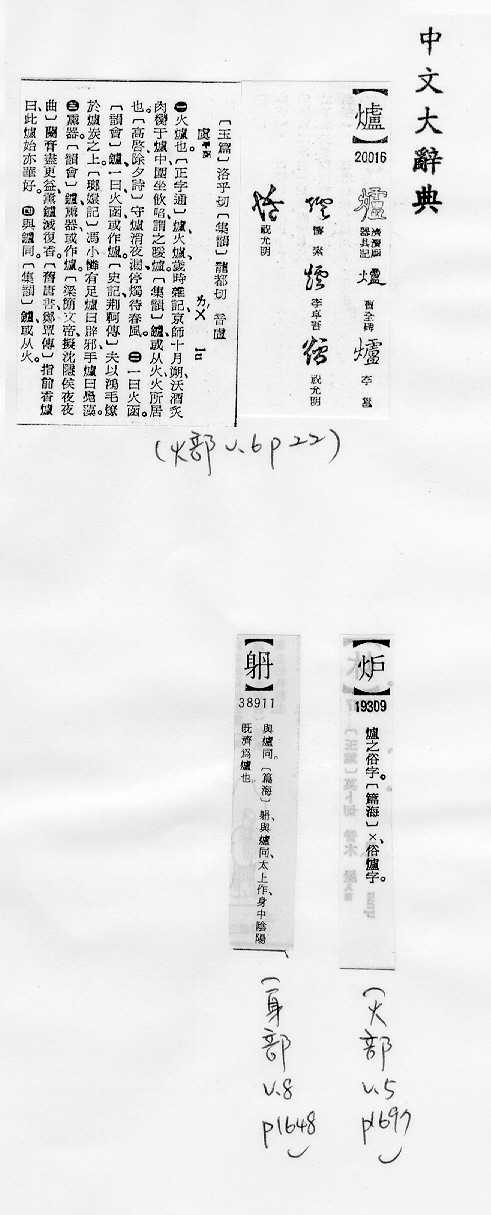 中文大辭典
【爐】
20016
濟瀆廟
器具記
曹全碑
李邕
懷素
李卓吾
祝允明
祝尤明
〔玉篇〕洛乎切〔集韻〕龍都切 音盧
虞平聲
ㄌㄨˊ lu
㊀火爐也。〔正字通〕爐、火爐、歲時雜記、京師十月朔、沃酒炙
肉臠于爐中、團坐飲啗、謂之煖爐。〔集韻〕鑪、或从火、火所居
也。〔高啓、除夕詩〕守爐消夜漏、停燭待春風。㊁一曰火函。
〔韻會〕鑪、一曰火函、或作爐。〔史記、荆軻傳〕夫以鴻毛燎
於爐炭之上。〔瑯嬛記〕馮小憐有足爐曰辟邪、手爐曰鳧藻。
㊂熏器。〔韻會〕鑪、薰器、或作爐。〔梁簡文帝、擬沈隱侯夜夜
曲〕蘭膏盡更益、薰鑪滅復香。〔舊唐書、鄭覃傳〕指前香爐
曰、此爐始亦華好。㊃與鑪同。〔集韻〕鑪、或从火。
(火部 v.6 p22)
【炉】
19309
爐之俗字。〔篇海〕×、俗爐字。
(火部 v.5 p1697)
38911
與爐同。〔篇海〕、與爐同、太上作、身中陰陽
旣濟爲爐也。
(身部 v.8 p1648)